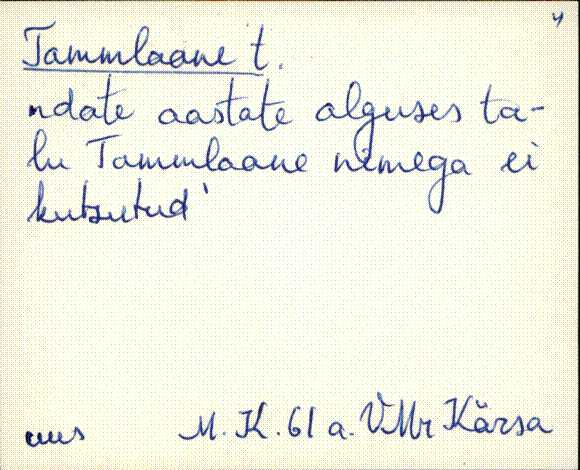 4
Tammlaane t.
ndate aastate alguses ta-
lu Tammlaane nimega ei
kutsutud'
uus M. K. 61 a. VMr Kärsa